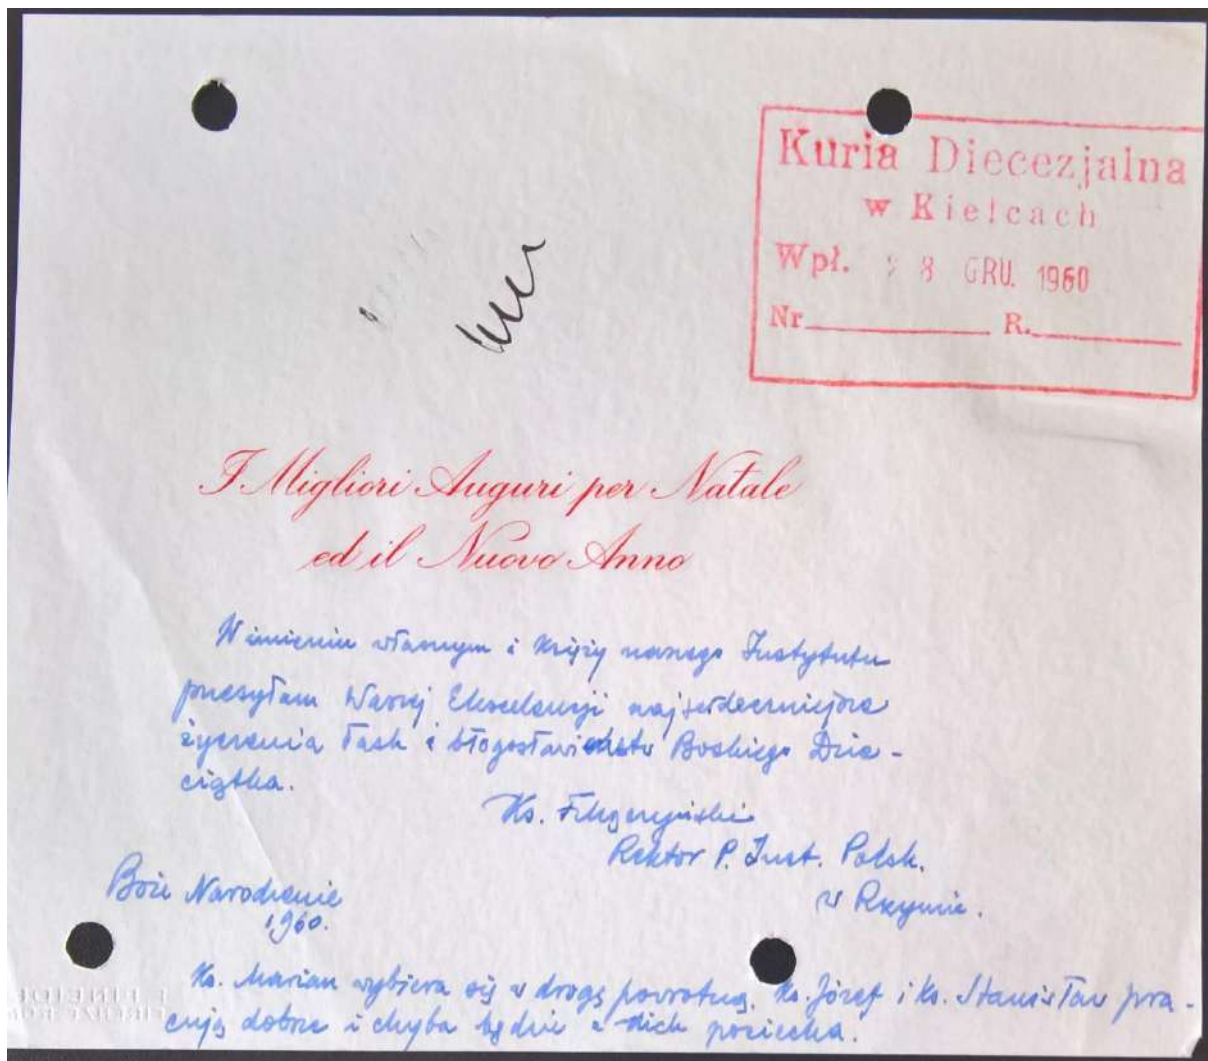 Kuria Diecezjalna
w Kielcach
Wpł. 28 GRU. 1960
Nr R.
I Migliori Auguri per Natale
ed il Nuovo Anno
W imieniu własnym i księży naszego Instytutu
przesyłam Waszej Ekscelencji najserdeczniejsze
życzenia łask i błogosławieństw Boskiego Dzie-
ciątka.
Ks.
Rektor P. Inst. Polsk.
w Rzymie.
Boże Narodzenie
1960.
Ks. Marian wybiera się w drogę powrotną. Ks. Józef i ks. Stanisław pra-
cują dobrze i chyba będzie z nich pociecha.